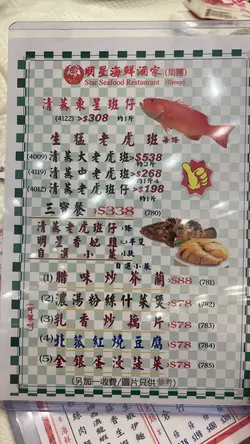 明星海鮮酒家(集團)
Star Seafood Restaurant (Group)
清蒸東星班仔
(4122) >$308 約1斤
生猛老虎班 每條
(4009) 清蒸大老虎班>$538 約2斤
(4119) 清蒸中老虎班>$268 約1斤
(4012) 清蒸老虎班仔>$198 約1斤
三寶餐 >$338 (780)
清蒸老虎班仔1條
明星香妃雞
自選小菜1款
自選小菜
(1) 腊味炒芥蘭 >$88 (781)
(2) 濃湯粉絲什菜煲 >$78 (782)
(3) 乳香炒藕片 >$78 (783)
(4) 北菇紅燒豆腐 >$78 (784)
(5) 金銀蛋浸菠菜 >$78 (785)
(另加一收費/圖片只供參考)